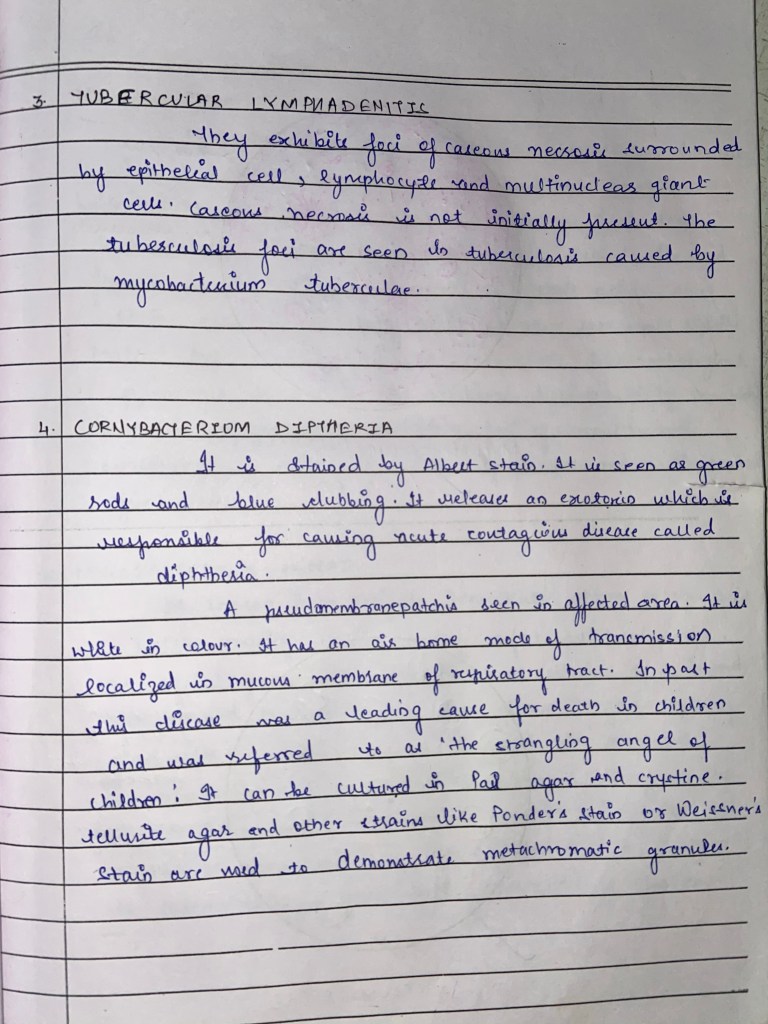 3. TUBERCULAR LYMPHADENITIC
They exhibits foci of caseous necrosis surrounded
by epithelial cell, lymphocyte and multinuclear giant
cells. Caseous necrosis is not initially present. The
tuberculosis foci are seen in tuberculosis caused by
mycobacterium tuberculae.
4. CORNYBACTERIOM DIPTHERIA
It is stained by Albert stain. It is seen as green
rods and blue clubbing. It releases an exotoxin which is
responsible for causing acute contagious disease called
diphtheria.
A pseudomembranepatchis seen in affected area. It is
white in colour. It has an air borne mode of trancmission
localized in mucous membrane of respiratory tract. In past
this disease was a leading cause for death in children
and was referred to as 'the strangling angel of
children'. It can be cultured in Pail agar and crystine.
tellusite agar and other strains like Ponder's stain or Weissner's
stain are used to demonstrate metachromatic granules.